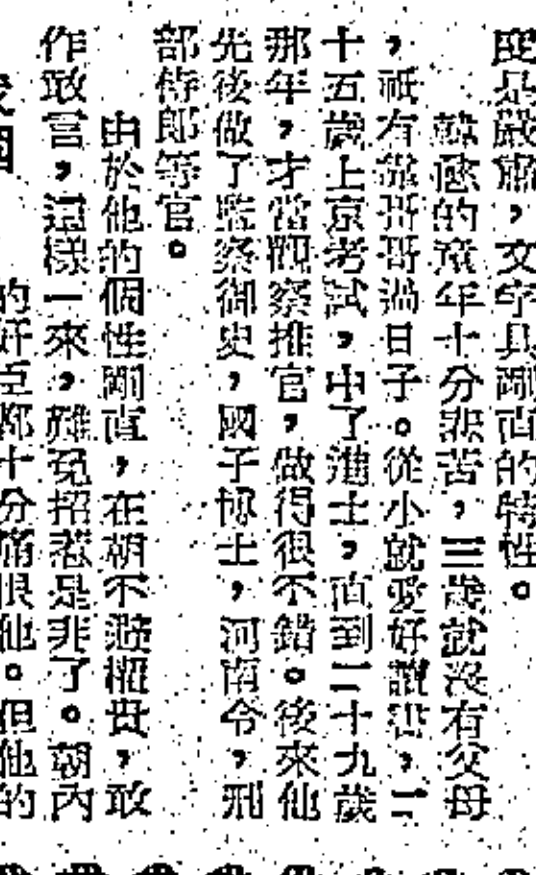 度是嚴肅,文字具剛直的特性。
韓愈的童年十分悲苦,三歲就沒有父母
,祇有靠哥哥過日子。從小就愛好讀書,二
十五歲上京考試,中了進士,直到二十九歲
那年,才當觀察推官,做得很不錯。後來他
先後做了監察御史,國子博士,河南令,刑
部侍郎等官。
由於他的個性剛直,在朝不避權貴,敢
作敢言,這樣一來,難免招惹是非了。朝內
的奸臣都十分痛恨他。但他的